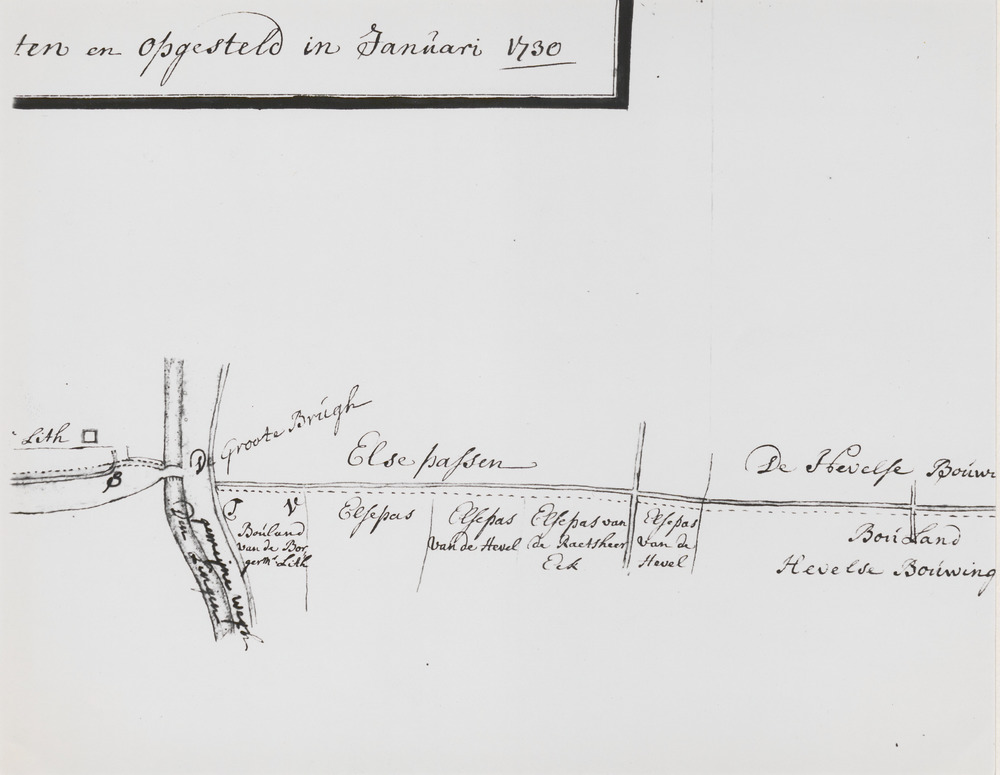 ten en opgesteld in Januari 1730
Lith
S
De Groote Brúgh
Else passen
De Hevelse Boúwi
T
V
Boúland
van de Bor
germr Lith
Elsepas
Elsepas
van de Hevel
Elsepas van
de Raetsheer
Eck
Elsepas
van de
Hevel
Boúland
Hevelse Boúwing
gemeijne weg